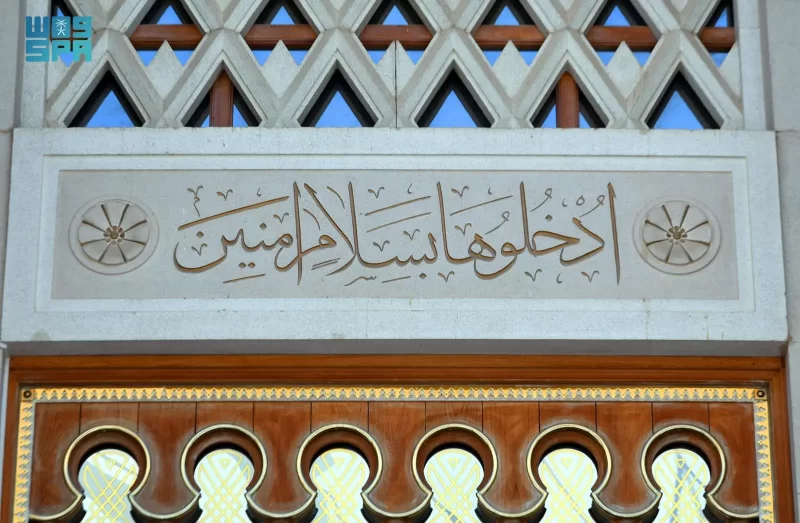 واس
SPA
ٱدْخُلُوهَا بِسَلَامٍ اٰمِنِينَ